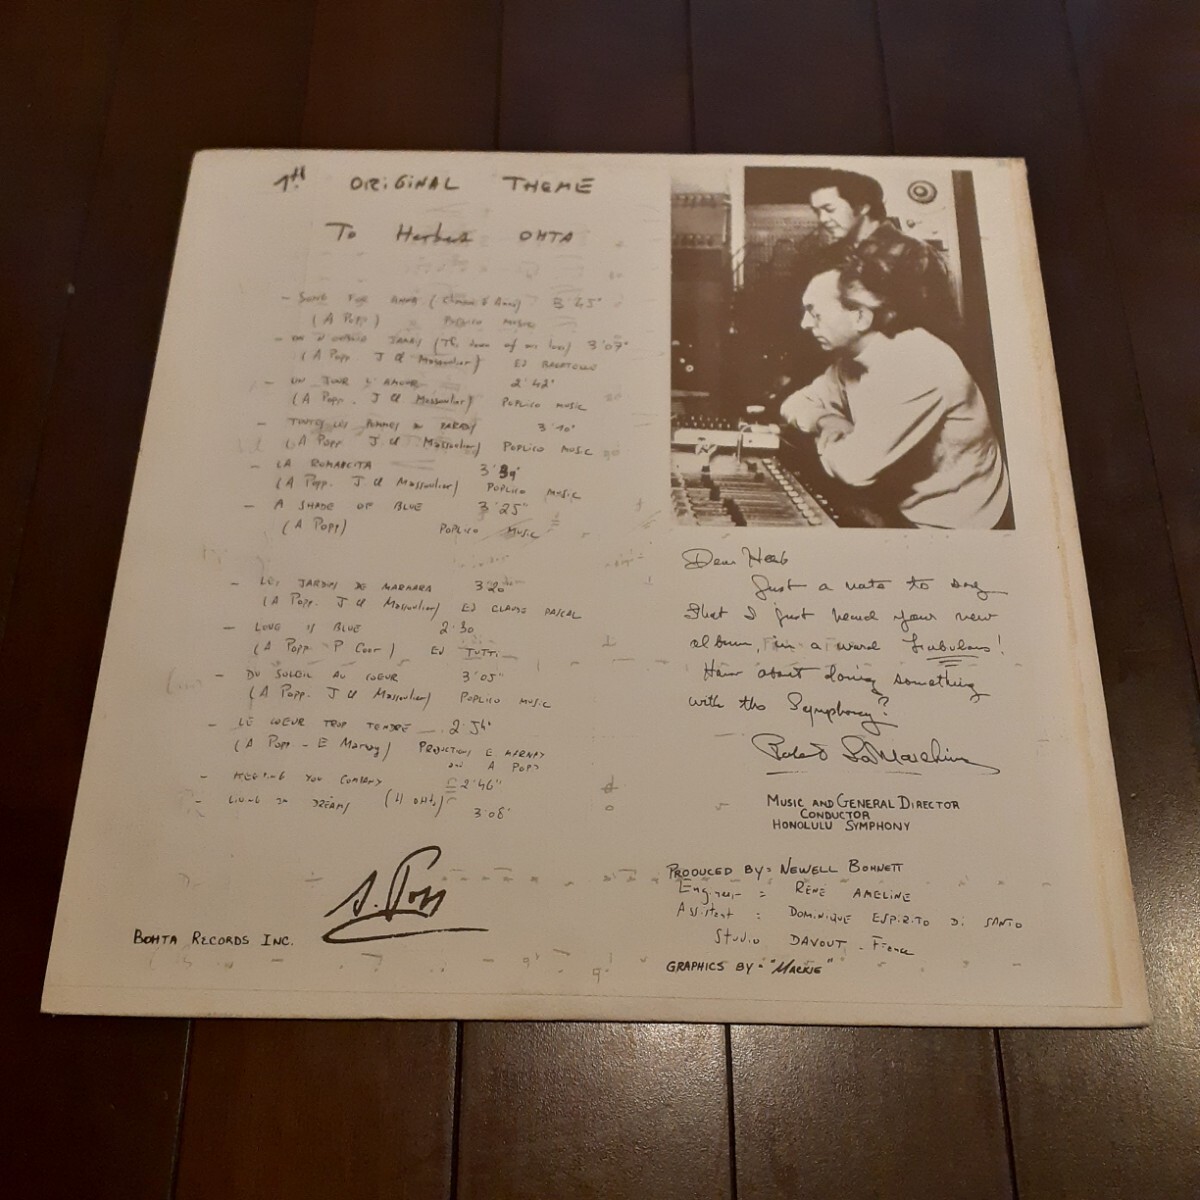 1th ORIGINAL THEME
To Herbert OHTA
- SONG FOR ANNA (Chanson d'Anna) 3'45"
(A Popp) POPLICO MUSIC
JAMES (The of love) 3'07"
(A Popp J Cl Massoulier) ED BAGATELLE
- UN JOUR L'AMOUR 2'42"
(A Popp. J Cl Massoulier) POPLICO MUSIC
- TOUTES LES 3'10"
(A Popp J Cl Massoulier) POPLICO MUSIC
- LA ROMANCITA 3'39"
(A Popp. J Cl Massoulier) POPLICO MUSIC
- A SHADE OF BLUE 3'25"
(A Popp) POPLICO MUSIC
- LES JARDINS DE MARMARA 3'20"
(A Popp. J Cl Massoulier) ED CLAUDE PASCAL
- LOVE IS BLUE 2'30
(A Popp P Cour) ED TUTTI
- DU SOLEIL AU COEUR 3'05"
(A Popp. J Cl Massoulier) POPLICO MUSIC
- LE COEUR TROP TENDRE 2'54"
(A Popp - E Marnay) PRODUCTIONS E MARNAY
A POPP
- KEEPING YOU COMPANY 2'46"
- LIVING IN DREAMS (H OHTA) 3'08"
A. Popp
BOHTA RECORDS INC.
Dear Herb
Just a note to say
that I just heard your new
album, in a word Fabulous!
How about doing something
with the Symphony?
Robert LaMarchina
MUSIC AND GENERAL DIRECTOR
CONDUCTOR
HONOLULU SYMPHONY
PRODUCED BY: NEWELL BOHNETT
Engineer: RENÉ AMELINE
Assistant: DOMINIQUE ESPIRITO DI SANTO
Studio DAVOUT - France
GRAPHICS BY: "MACKIE"